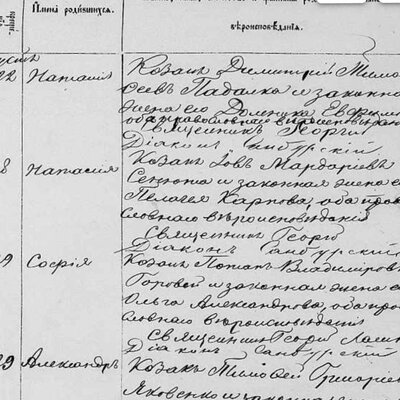 Имена родившихся.
вѣроисповѣданія.
22 Наталія
Козакъ Димитрій Тимо
сеевъ Падалка и законна
жена его Домника Ефим
оба православнаго вѣроисповѣдан
Священникъ Георгій
Діаконъ Самбурскій
8 Наталія
Козакъ Іовъ Мардаріевъ
Сенюта и законная жена е
Пелагея Карпова, оба пра
славнаго вѣроисповѣданія
Священникъ Георгі
Діаконъ Самбурскій
9 Софія
Козакъ Потапъ Владиміров
Горовей и законная жена е
Ольга Александрова, оба пра
славнаго вѣроисповѣданія
Священникъ Георгій
Діаконъ Самбурскій
29 Александръ
Козакъ Тимофей Григоріе
Яковенко и законная